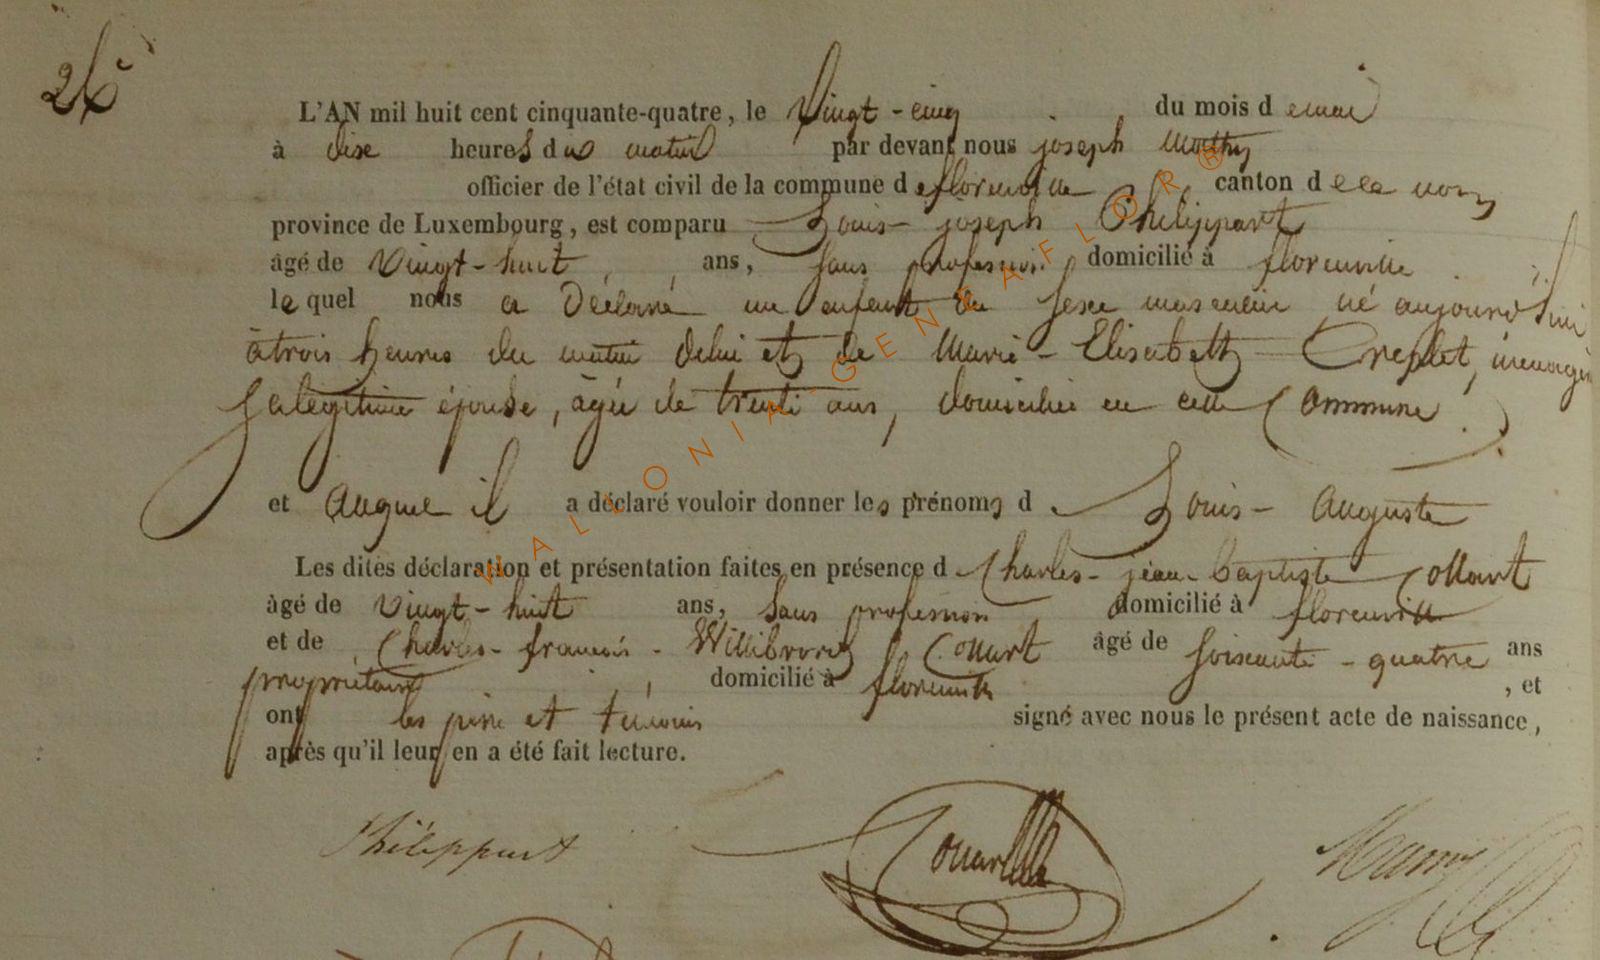 26e
L'AN mil huit cent cinquante-quatre, le Vingt-cinq du mois d emai
à dixe heures du matin par devant nous joseph
officier de l'état civil de la commune d eflorenville canton d
province de Luxembourg, est comparu Louis-joseph Philippart
âgé de Vingt-huit ans, sans profession domicilié à florenville
lequel nous a Déclaré un enfant du sexe masculin né aujourd'hui
à trois heures du matin delui et de Marie-Elisabeth Creplet, menagère
sa legitime épouse, agée de trente ans, domiciliée en cette Commune
et auquel il a déclaré vouloir donner les prénoms d Louis-Auguste
Les dites déclaration et présentation faites en présence d Charles-jean-baptiste Collart
âgé de Vingt-huit ans, sans profession domicilié à florenville
et de Charles-francois-Willibrord Collart âgé de soixante-quatre ans
propriétaire, domicilié à florenville, et
ont les père et témoins signé avec nous le présent acte de naissance,
après qu'il leur en a été fait lecture.
Philippart
WALLONIA-GENEAFLOR®